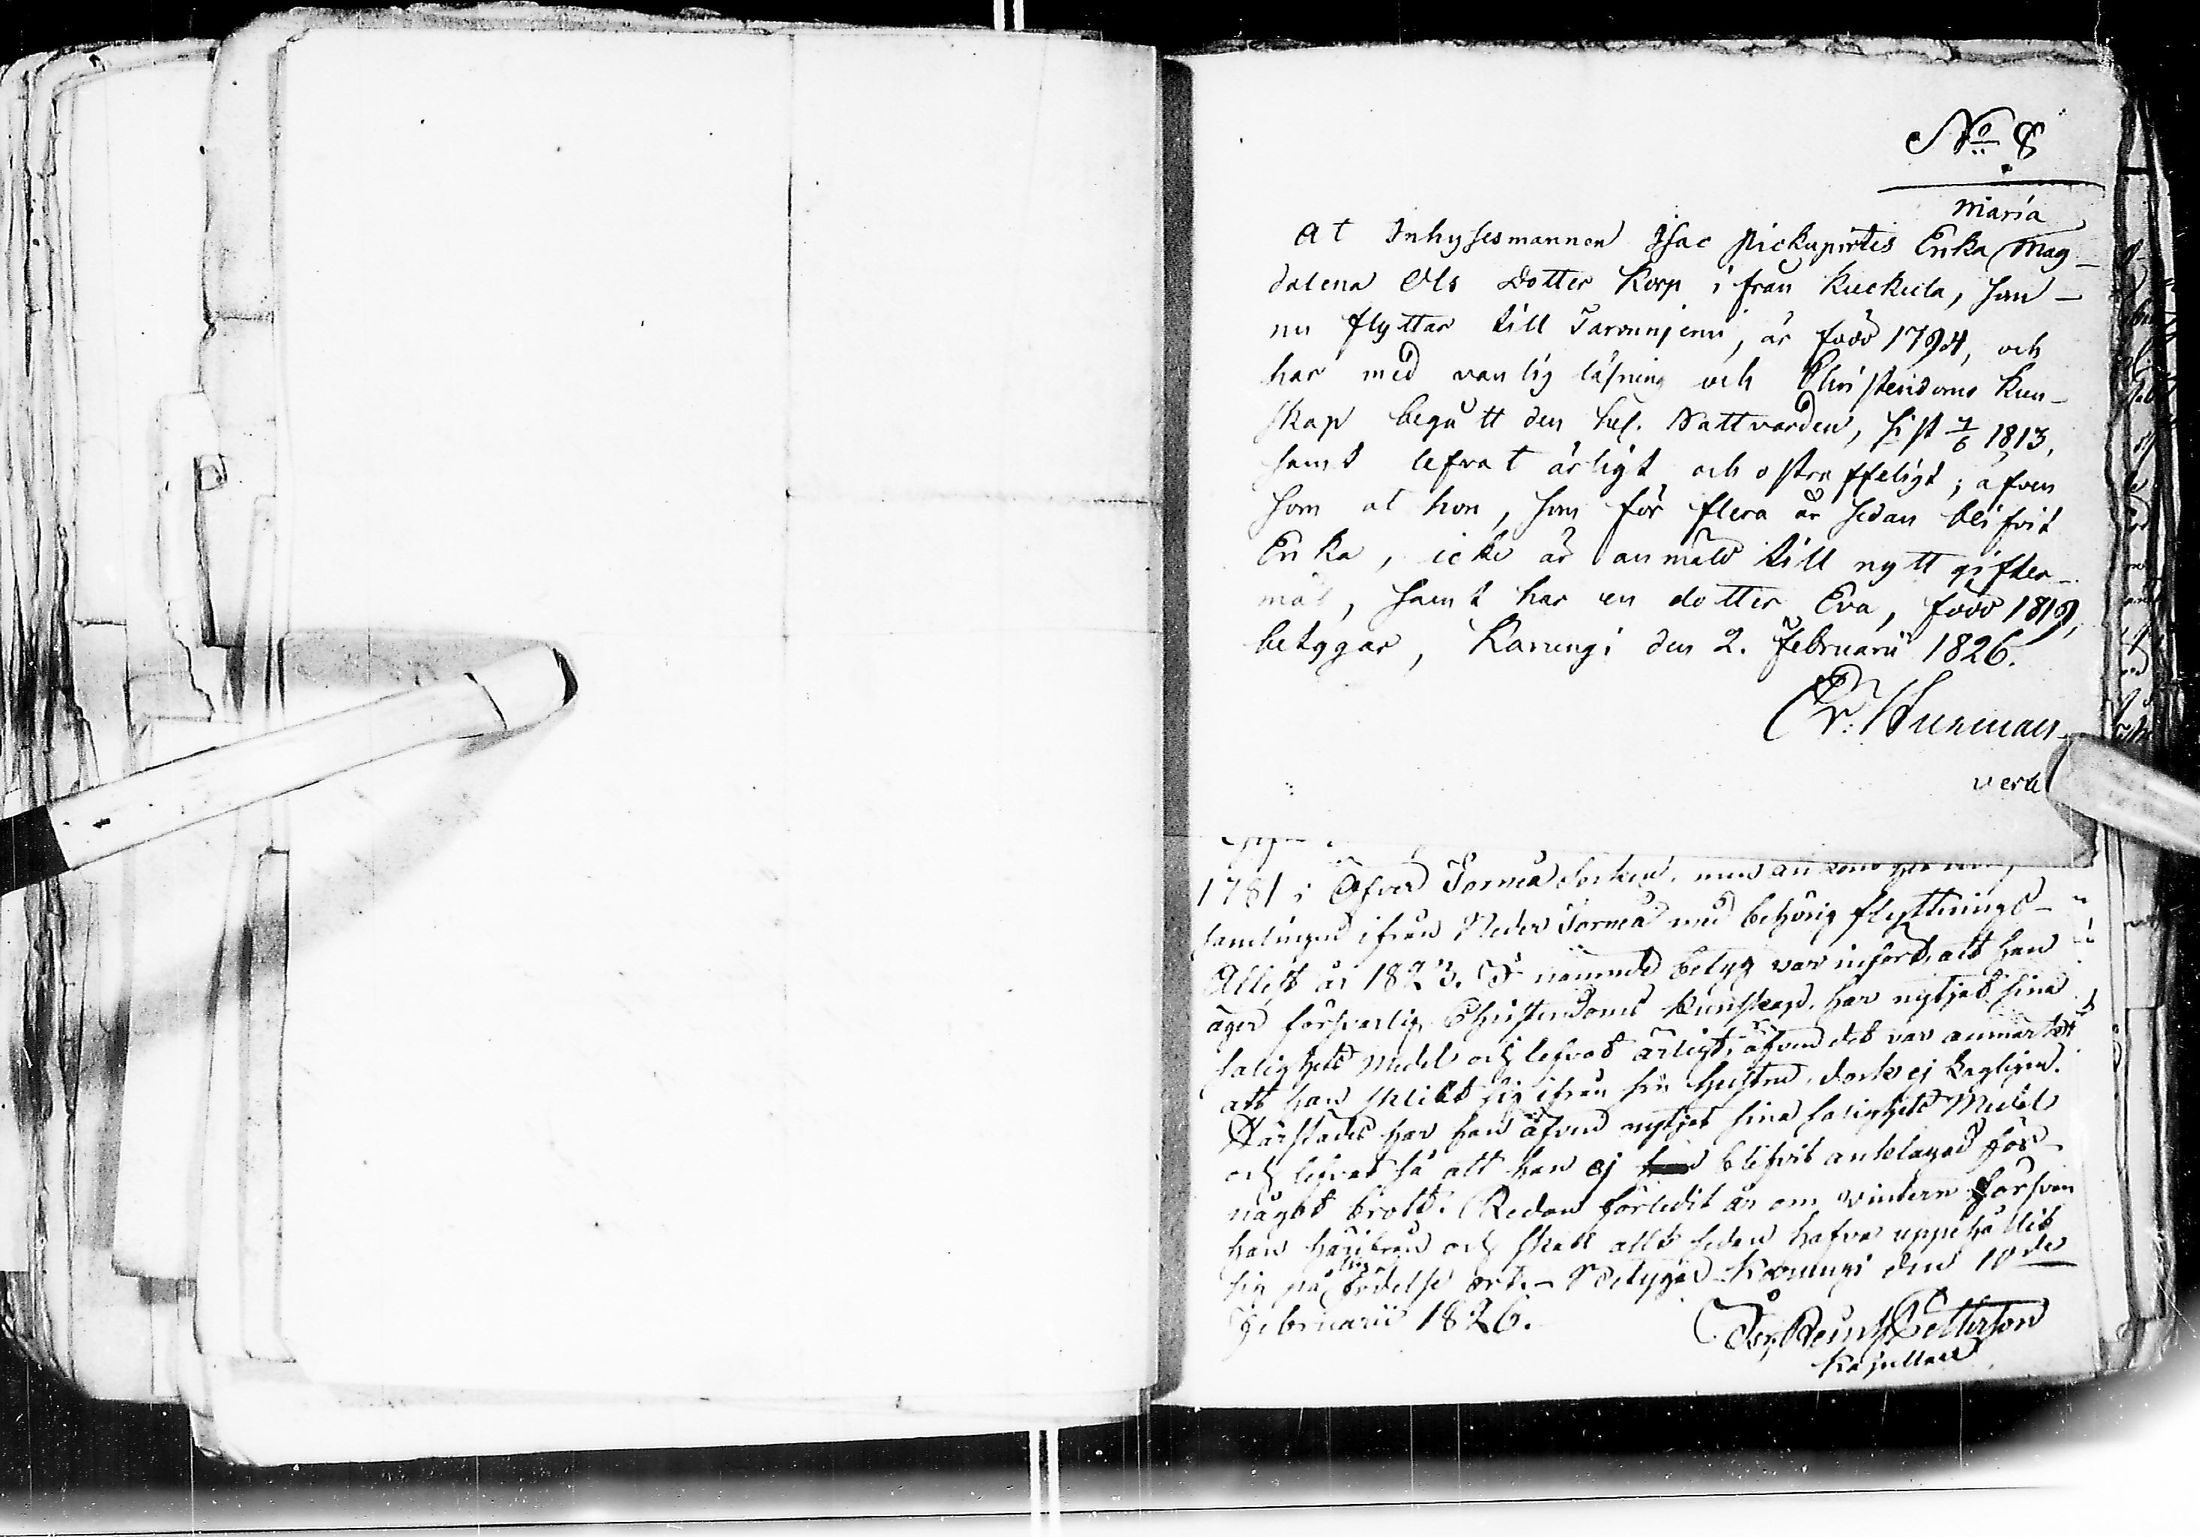 No 8
Maria
At Inhysesmannen Isac Pickupirtis Enka Mag-
dalena Ols Dotter Korp ifrån Kuckula, som
nu flyttar till Tarvonjemi, är född 1794, och
har med vanlig läsning och Christendoms kun-
skap begått den hel. Nattvarden, sist 7/6 1813,
samt lefvat ärligt och ostraffeligt; äfven
som at hon, som för flera år sedan blifvit
Enka, icke är anmäld till nytt gifter-
mål, samt har en dotter Eva, född 1819,
betygar, Karungi den 2. Februarii 1826.
Er. Hurman
verte
1781 i Öfver Torneå Socken, men
samlingen ifrån Neder Torneå med behörig flyttnings-
Attest år 1823. I nämnde betyg var infördt, att han
äger försvarlig Christendoms kunskap, har nytjat sina
salighets Medel och lefvat ärligt, äfven det var anmärkt
att han skildt sig ifrån sin hustru, dock ej lagligen.
Härstädes har han äfven nytjat sina salighets Medel
och lefvat så att han ej blifvit anklagad för
något brott. Redan förledit år om vintern försvan
han härifrån och skall allt sedan hafva uppehållit
sig på sin födelse ort. Betygar Karungi den 10de
Februarii 1826.
Petterson